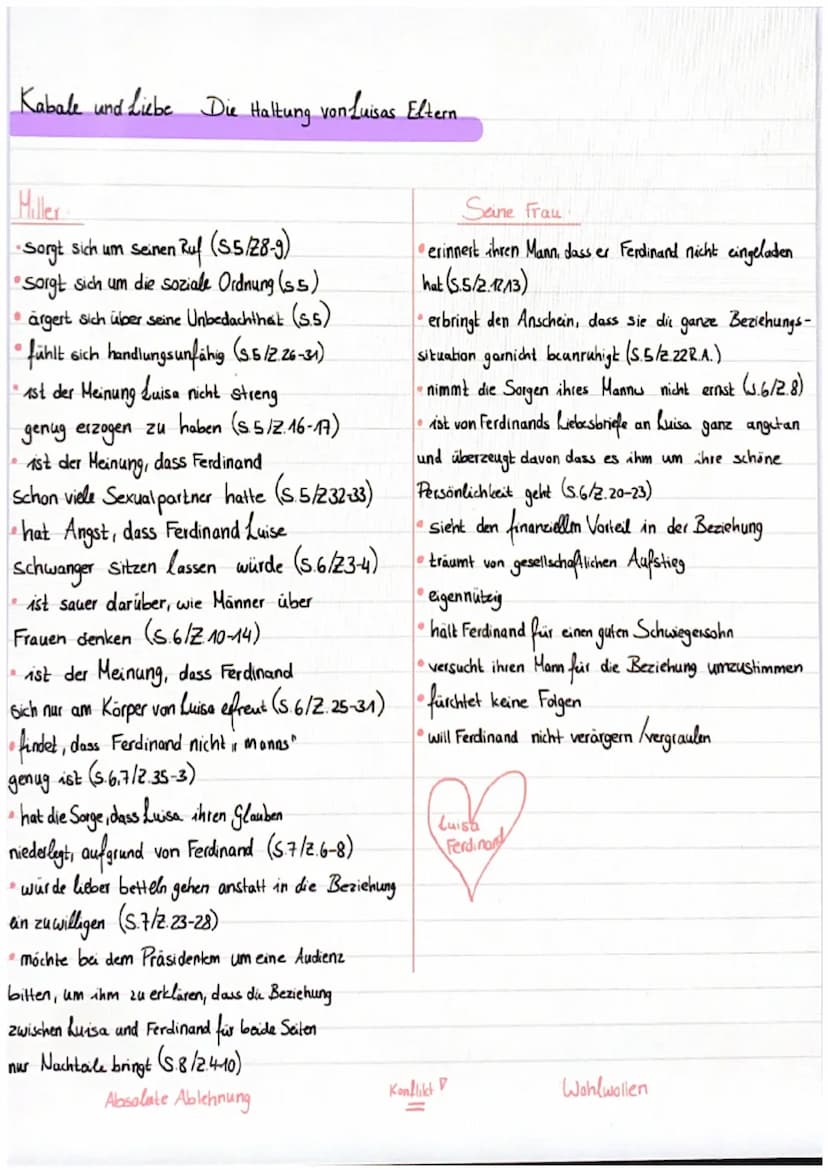 Kabale und Liebe Die Haltung von Luisas Eltern
Miller
• sorgt sich um seinen Ruf (S.5/Z8-9)
• sorgt sich um die soziale Ordnung (S5)
• ärgert sich über seine Unbedachtheit (S.5)
• fühlt sich handlungsunfähig (S.5/Z.26-31)
• ist der Meinung Luisa nicht streng
genug erzogen zu haben (S.5/Z.16-17)
• ist der Meinung, dass Ferdinand
schon viele Sexualpartner hatte (S.5/Z32-33)
• hat Angst, dass Ferdinand Luise
schwanger sitzen lassen würde (S.6/Z3-4)
• ist sauer darüber, wie Männer über
Frauen denken (S.6/Z.10-14)
• ist der Meinung, dass Ferdinand
sich nur am Körper von Luisa efreut (S.6/Z.25-31)
• findet, dass Ferdinand nicht „manns"
genug ist (S.6,7/Z.35-3)
• hat die Sorge, dass Luisa ihren Glauben
niederlegt, aufgrund von Ferdinand (S.7/Z.6-8)
• würde lieber betteln gehen anstatt in die Beziehung
ein zuwilligen (S.7/Z.23-28)
• möchte bei dem Präsidenten um eine Audienz
bitten, um ihm zu erklären, dass die Beziehung
zwischen Luisa und Ferdinand für beide Seiten
nur Nachteile bringt (S.8/Z.4-10)
Absolute Ablehnung
Seine Frau
• erinnert ihren Mann, dass er Ferdinand nicht eingeladen
hat (S.5/Z.12,13)
• erbringt den Anschein, dass sie die ganze Beziehungs-
situation garnicht beanruhigt (S.5/Z.22R.A.)
• nimmt die Sorgen ihres Mannes nicht ernst (S.6/Z.8)
• ist von Ferdinands Liebesbriefe an Luisa ganz angetan
und überzeugt davon dass es ihm um ihre schöne
Persönlichkeit geht (S.6/Z.20-23)
• sieht den finanziellen Vorteil in der Beziehung
• träumt von gesellschaftlichen Aufstieg
• eigennützig
• hält Ferdinand für einen guten Schwiegersohn
• versucht ihren Mann für die Beziehung umzustimmen
• fürchtet keine Folgen
• will Ferdinand nicht verärgern/vergraulen
Luisa
Ferdinand
Konflikt!
Wohlwollen